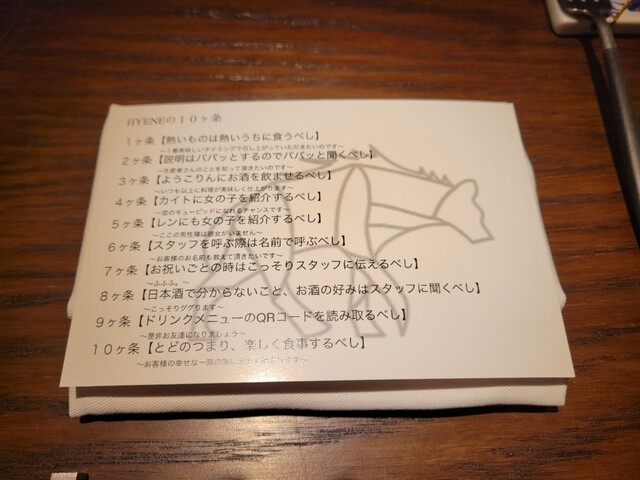 HYENEの１０ヶ条
１ヶ条【熱いものは熱いうちに食うべし】
～１番美味しいタイミングで召し上がっていただきたいのです～
２ヶ条【説明はパパッとするのでパパッと聞くべし】
～生産者さんのことも知って頂きたいのです～
３ヶ条【ようこりんにお酒を飲ませるべし】
～いつも以上に料理が美味しく仕上がります～
４ヶ条【カイトに女の子を紹介するべし】
～恋のキューピッドになれるチャンスです～
５ヶ条【レンにも女の子を紹介するべし】
～ここの男性陣は彼女がいません～
６ヶ条【スタッフを呼ぶ際は名前で呼ぶべし】
～お客様のお名前も教えて頂きたいです～
７ヶ条【お祝いごとの時はこっそりスタッフに伝えるべし】
～ふふふ。～
８ヶ条【日本酒で分からないこと、お酒の好みはスタッフに聞くべし】
～こっそりググります～
９ヶ条【ドリンクメニューのQRコードを読み取るべし】
～是非お友達になりましょう～
１０ヶ条【とどのつまり、楽しく食事するべし】
～お客様の幸せな一時の為に